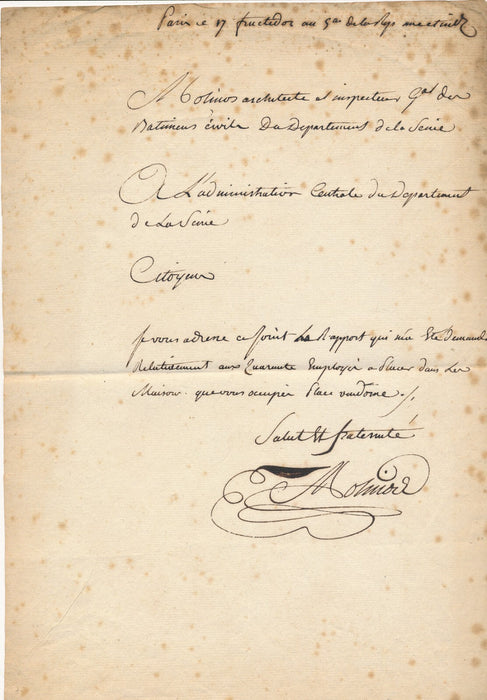 Paris ce 17 fructidor an 5e de la Rep une et indle
Molinos architecte et inspecteur Gal des
Batimens civils Du Departement de la Seine
A L'administration Centrale du Departement
de La Seine
Citoyens
Je vous adresse ce joint Le Rapport qui m'a Eté Demandé
Relativement aux quarante Employés a Placer dans Les
Maisons que vous occupés Place vendome ./.
Salut Et fraternité
Molinos